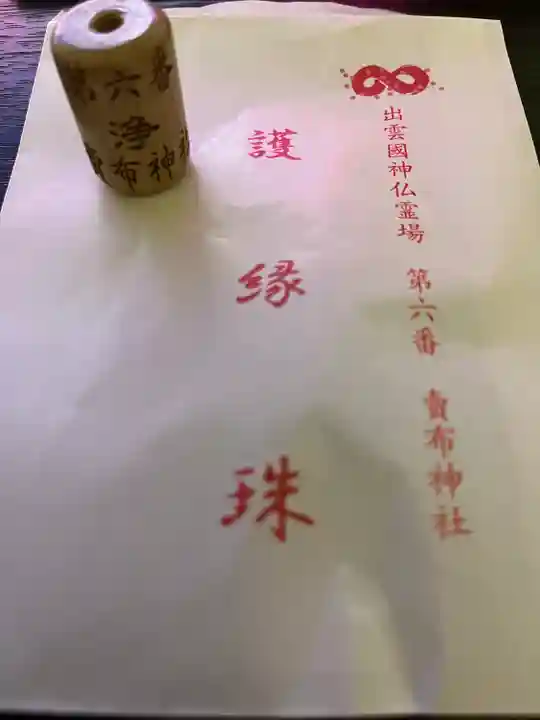 出雲國神仏霊場 第六番 賣布神社
護縁珠
第六番
浄
賣布神社